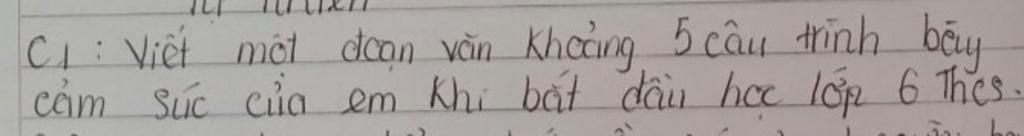 C1: Viết một đoạn văn khoảng 5 câu trình bày
cảm súc của em khi bắt đầu học lớp 6 Thcs.